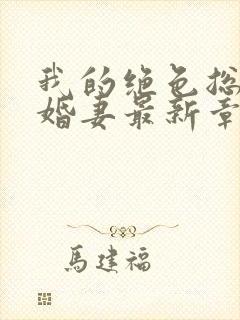 我的绝色总
婚妻最新章
馬建福